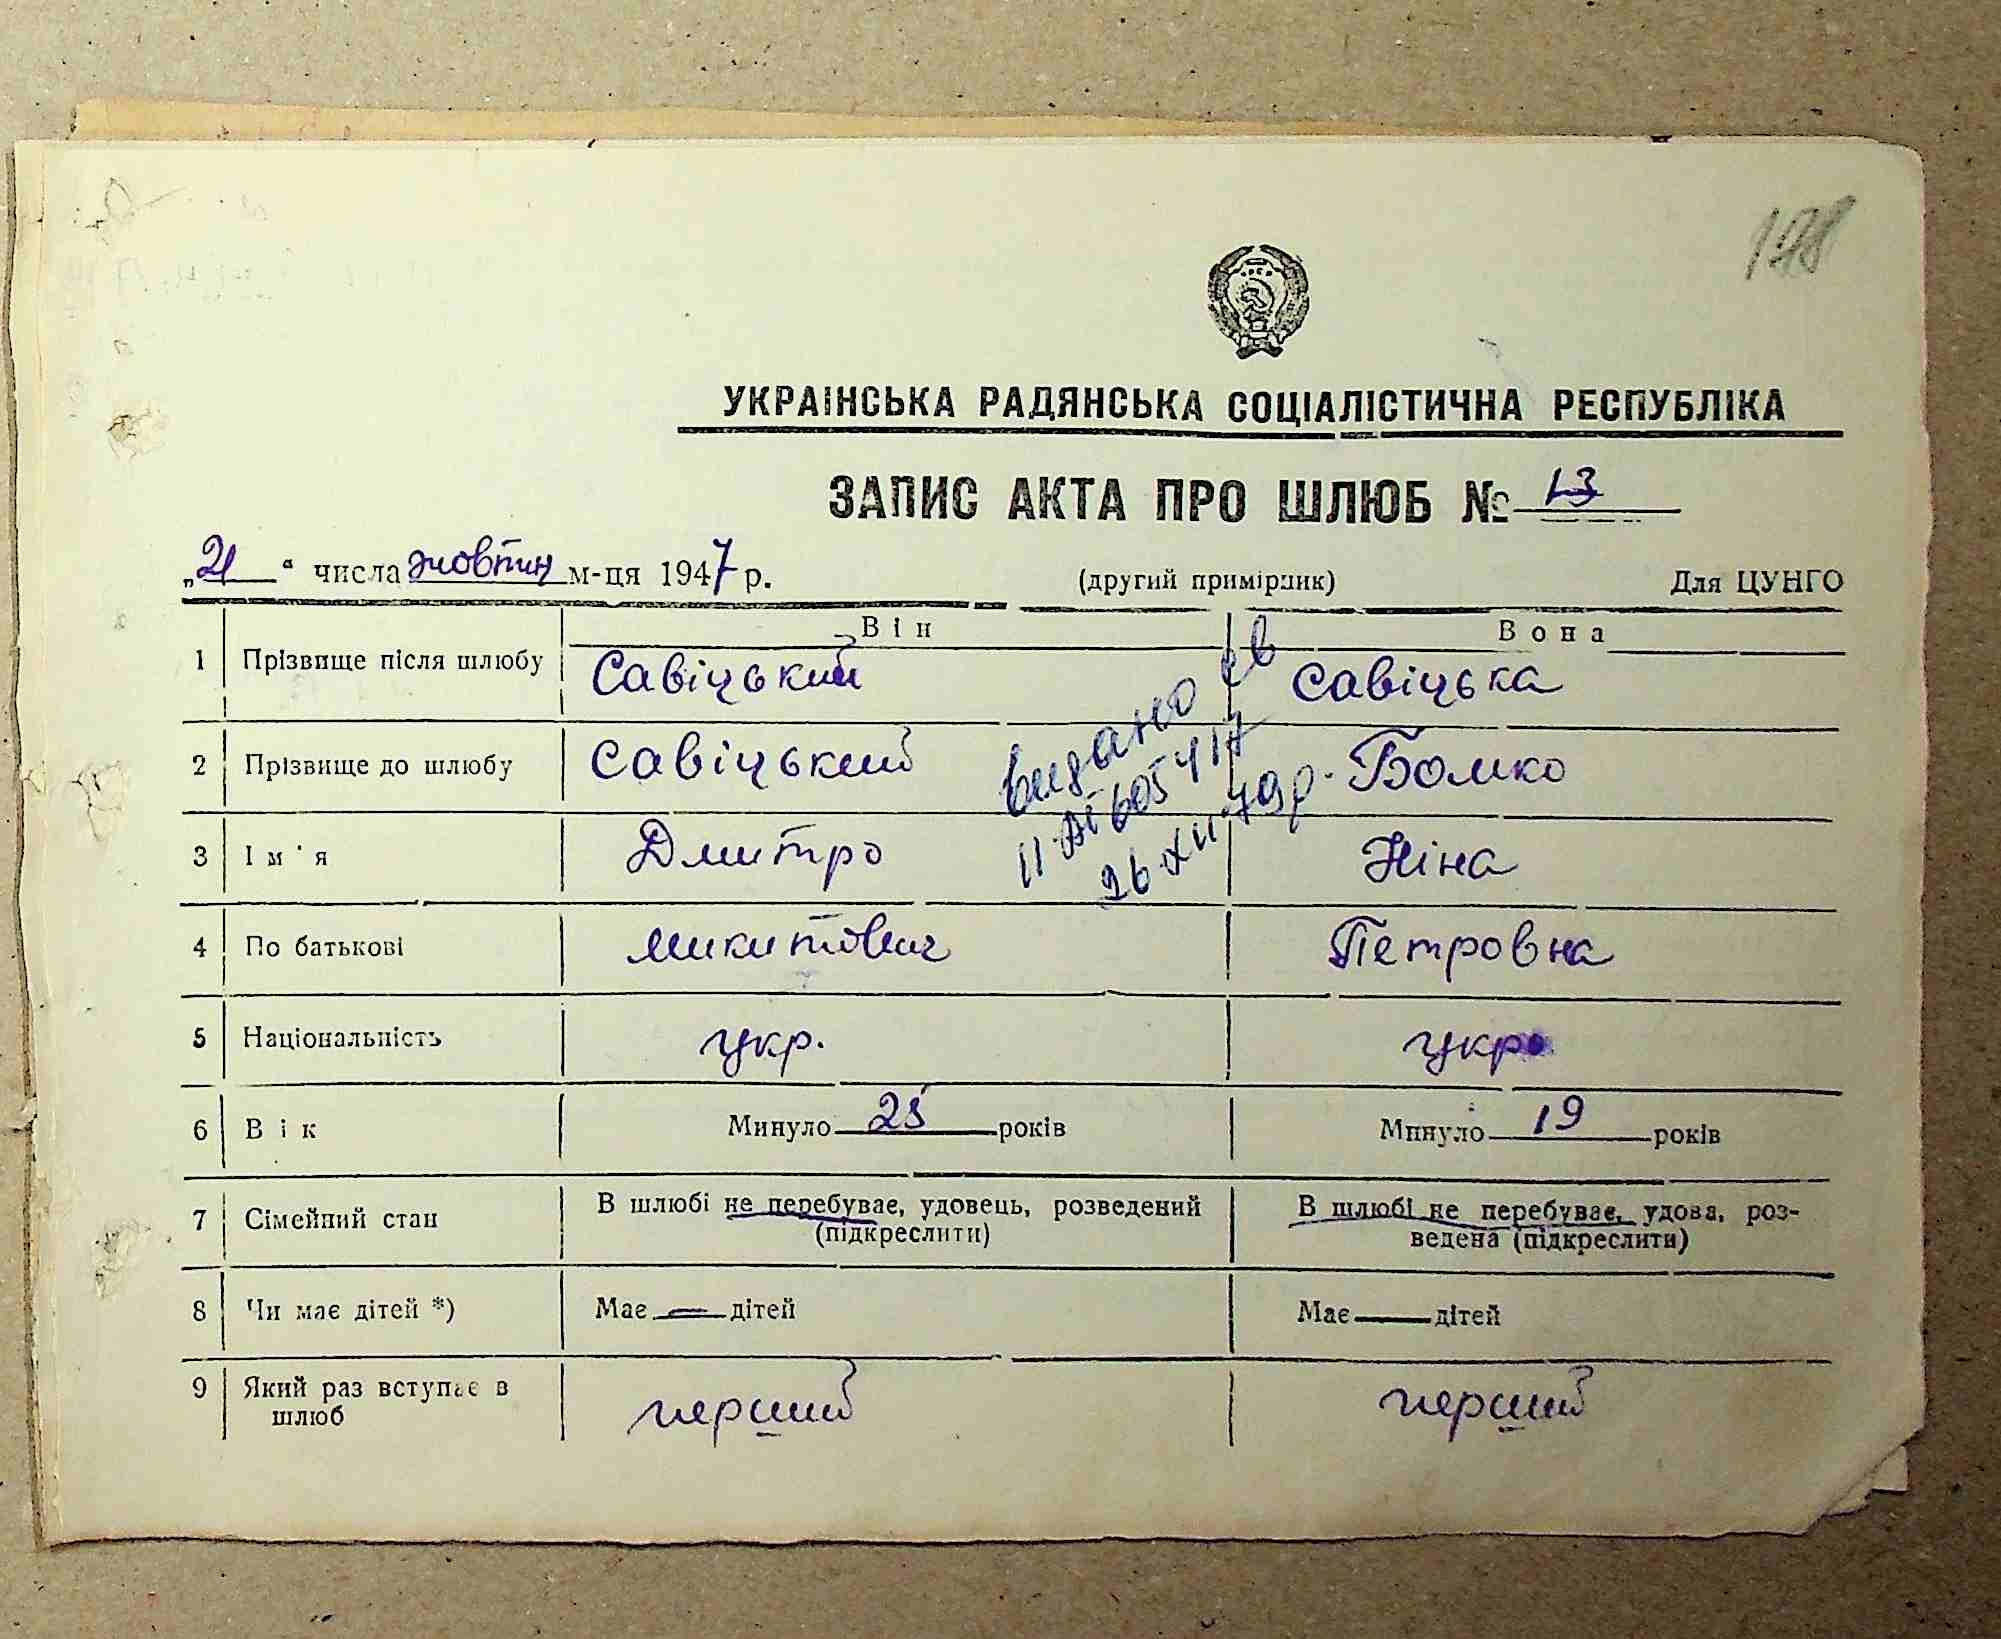 178
УКРАІНСЬКА РАДЯНСЬКА СОЦІАЛІСТИЧНА РЕСПУБЛІКА
ЗАПИС АКТА ПРО ШЛЮБ № 13
„21“ числа жовтня м-ця 1947 р. (другий примірник) Для ЦУНГО
Він Вона
1 Прізвище після шлюбу Савіцький Савіцька
2 Прізвище до шлюбу Савіцький Бомко
3 Ім'я Дмитро Ніна
4 По батькові Микитович Петровна
5 Національність укр. укр.
6 Вік Минуло 25 років Минуло 19 років
7 Сімейний стан В шлюбі не перебуває, удовець, розведений (підкреслити) В шлюбі не перебуває, удова, роз-
ведена (підкреслити)
8 Чи має дітей *) Має — дітей Має — дітей
9 Який раз вступає в
шлюб перший перший
видано св
605417
26.XII.79р.